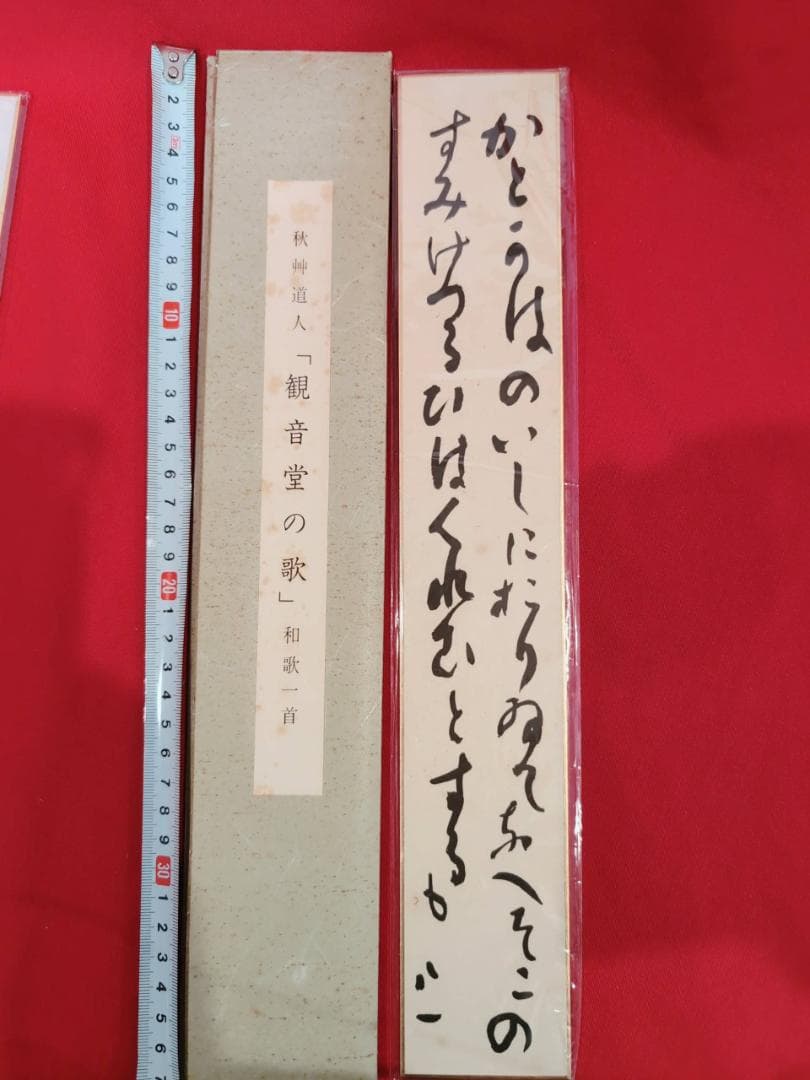 かとかはのいしにおりゐてなへそこの
すみけつるひはくれむとするも 八一
秋艸道人「観音堂の歌」和歌一首
2 3 4 5 6 7 8 9 10 1 2 3 4 5 6 7 8 9 20 1 2 3 4 5 6 7 8 9 30 1 2 3 4 5 6 7